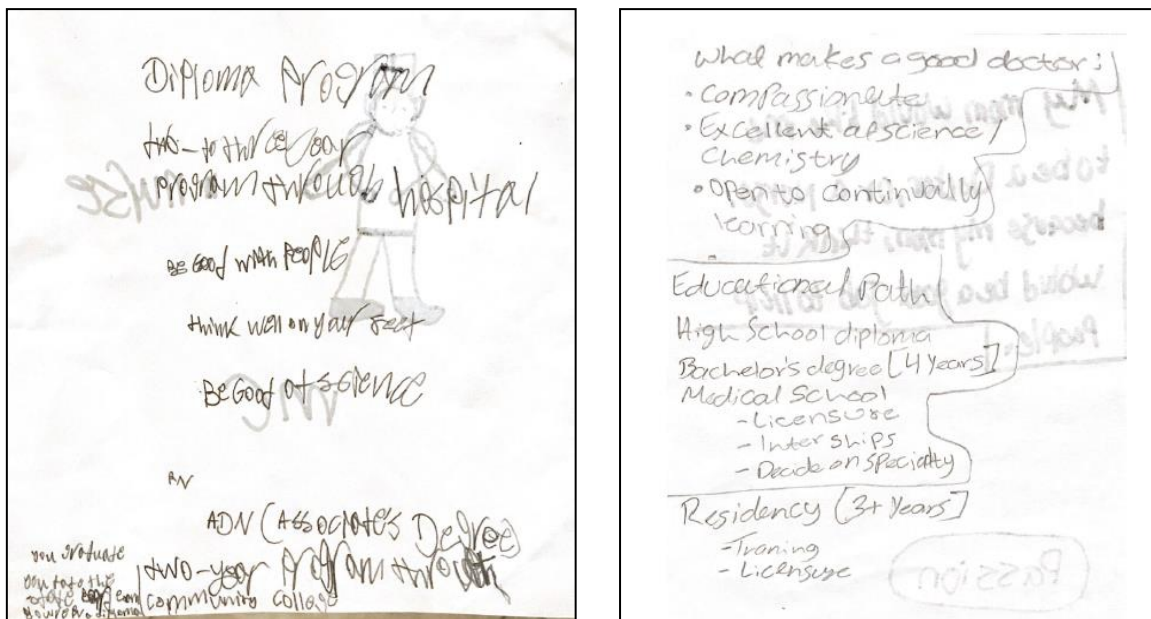 Diploma Program
two-to three year
program through hospital
BE GOOD WITH PEOPLE
think well on your feet
BE GOOD at SCIENCE
RN
ADN (ASSOCIATES Degree)
two-year Program through
community college
you graduate
you take the
state
nurse
me
What makes a good doctor:
• Compassionate
• Excellent at science/
Chemistry
• Open to continually
learning
Educational Path
High School diploma
Bachelor's degree [4 years]
Medical School
- Licensure
- Interships
- Decide on specialty
Residency [3+ years]
- Traning
- Licensure
My mom would like me
to be a
because my mom think it
would be a good job to help
people.
Passion